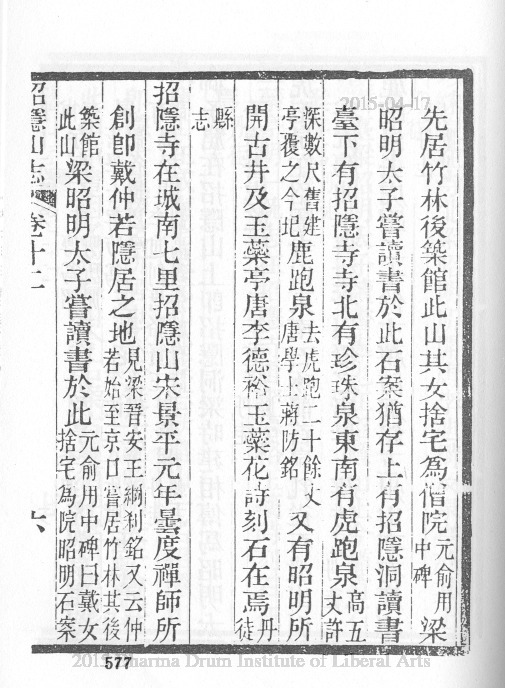 先居竹林後築館此山其女捨宅為僧院元俞用中碑梁
昭明太子嘗讀書於此石案猶存上有招隱洞讀書
臺下有招隱寺寺北有珍珠泉東南有虎跑泉高五丈許
深數尺舊建亭覆之今圮鹿跑泉去虎跑二十餘丈唐學士蔣防銘又有昭明所
開古井及玉蘂亭唐李德裕玉蘂花詩刻石在焉丹徒
縣志
招隱寺在城南七里招隱山宋景平元年曇度禪師所
創卽戴仲若隱居之地見梁晉安王綱刹銘又云仲若始至京口嘗居竹林其後
築館此山梁昭明太子嘗讀書於此元俞用中碑曰戴女捨宅為院昭明石案
招隱山志 卷十二 六
2015-04-17
577
Dharma Drum Institute of Liberal Arts